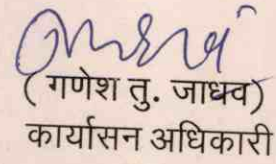 ( गणेश तु. जाधव)
कार्यासन अधिकारी